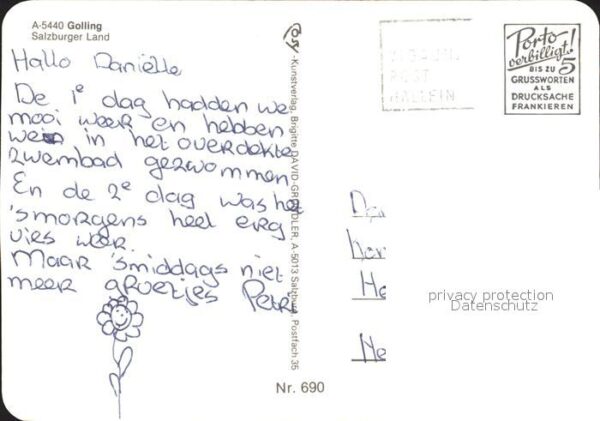 A-5440 Golling
Salzburger Land
Hallo Daniëlle
De 1e dag hadden we
mooi weer en hebben
we in het overdekte
zwembad gezwommen
En de 2e dag was het
'smorgens heel erg
vies weer.
Maar 'smiddags niet
meer groetjes Petra
-Kunstverlag, Brigitte DAVID-GRÜNDLER, A-5013 Salzburg, Postfach 35
POST
HALLEIN
Porto
verbilligt!
BIS ZU 5
GRUSSWORTEN
ALS
DRUCKSACHE
FRANKIEREN
He
He
privacy protection
Datenschutz
Nr. 690